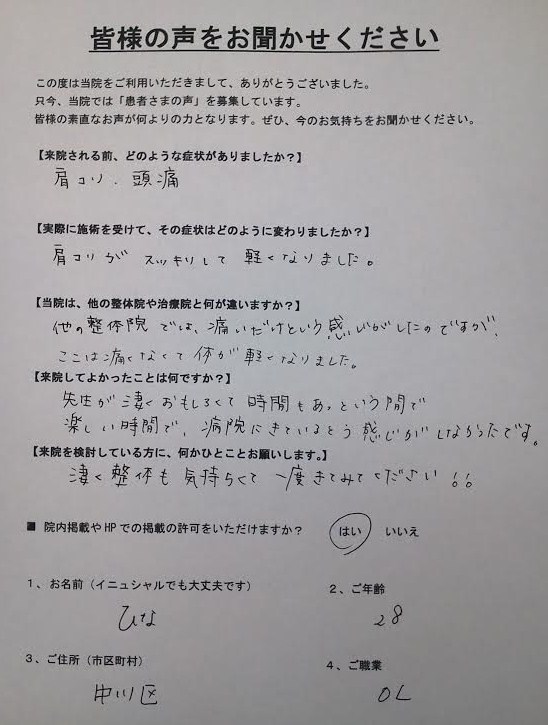 皆様の声をお聞かせください
この度は当院をご利用いただきまして、ありがとうございました。
只今、当院では「患者さまの声」を募集しています。
皆様の素直なお声が何よりの力となります。ぜひ、今のお気持ちをお聞かせください。
【来院される前、どのような症状がありましたか？】
肩コリ、頭痛
【実際に施術を受けて、その症状はどのように変わりましたか？】
肩コリがスッキリして軽くなりました。
【当院は、他の整体院や治療院と何が違いますか？】
他の整体院では、痛いだけという感じがしたのですが、
ここは痛くなくて体が軽くなりました。
【来院してよかったことは何ですか？】
先生が凄くおもしろくて時間もあっという間で
楽しい時間で、病院にきているとう感じがしなかったです。
【来院を検討している方に、何かひとことお願いします。】
凄く整体も気持ちらくて一度きてみてください!!
■ 院内掲載やHPでの掲載の許可をいただけますか？ はい いいえ
１、お名前（イニュシャルでも大丈夫です） ２、ご年齢
ひな 28
３、ご住所（市区町村） ４、ご職業
中川区 OL